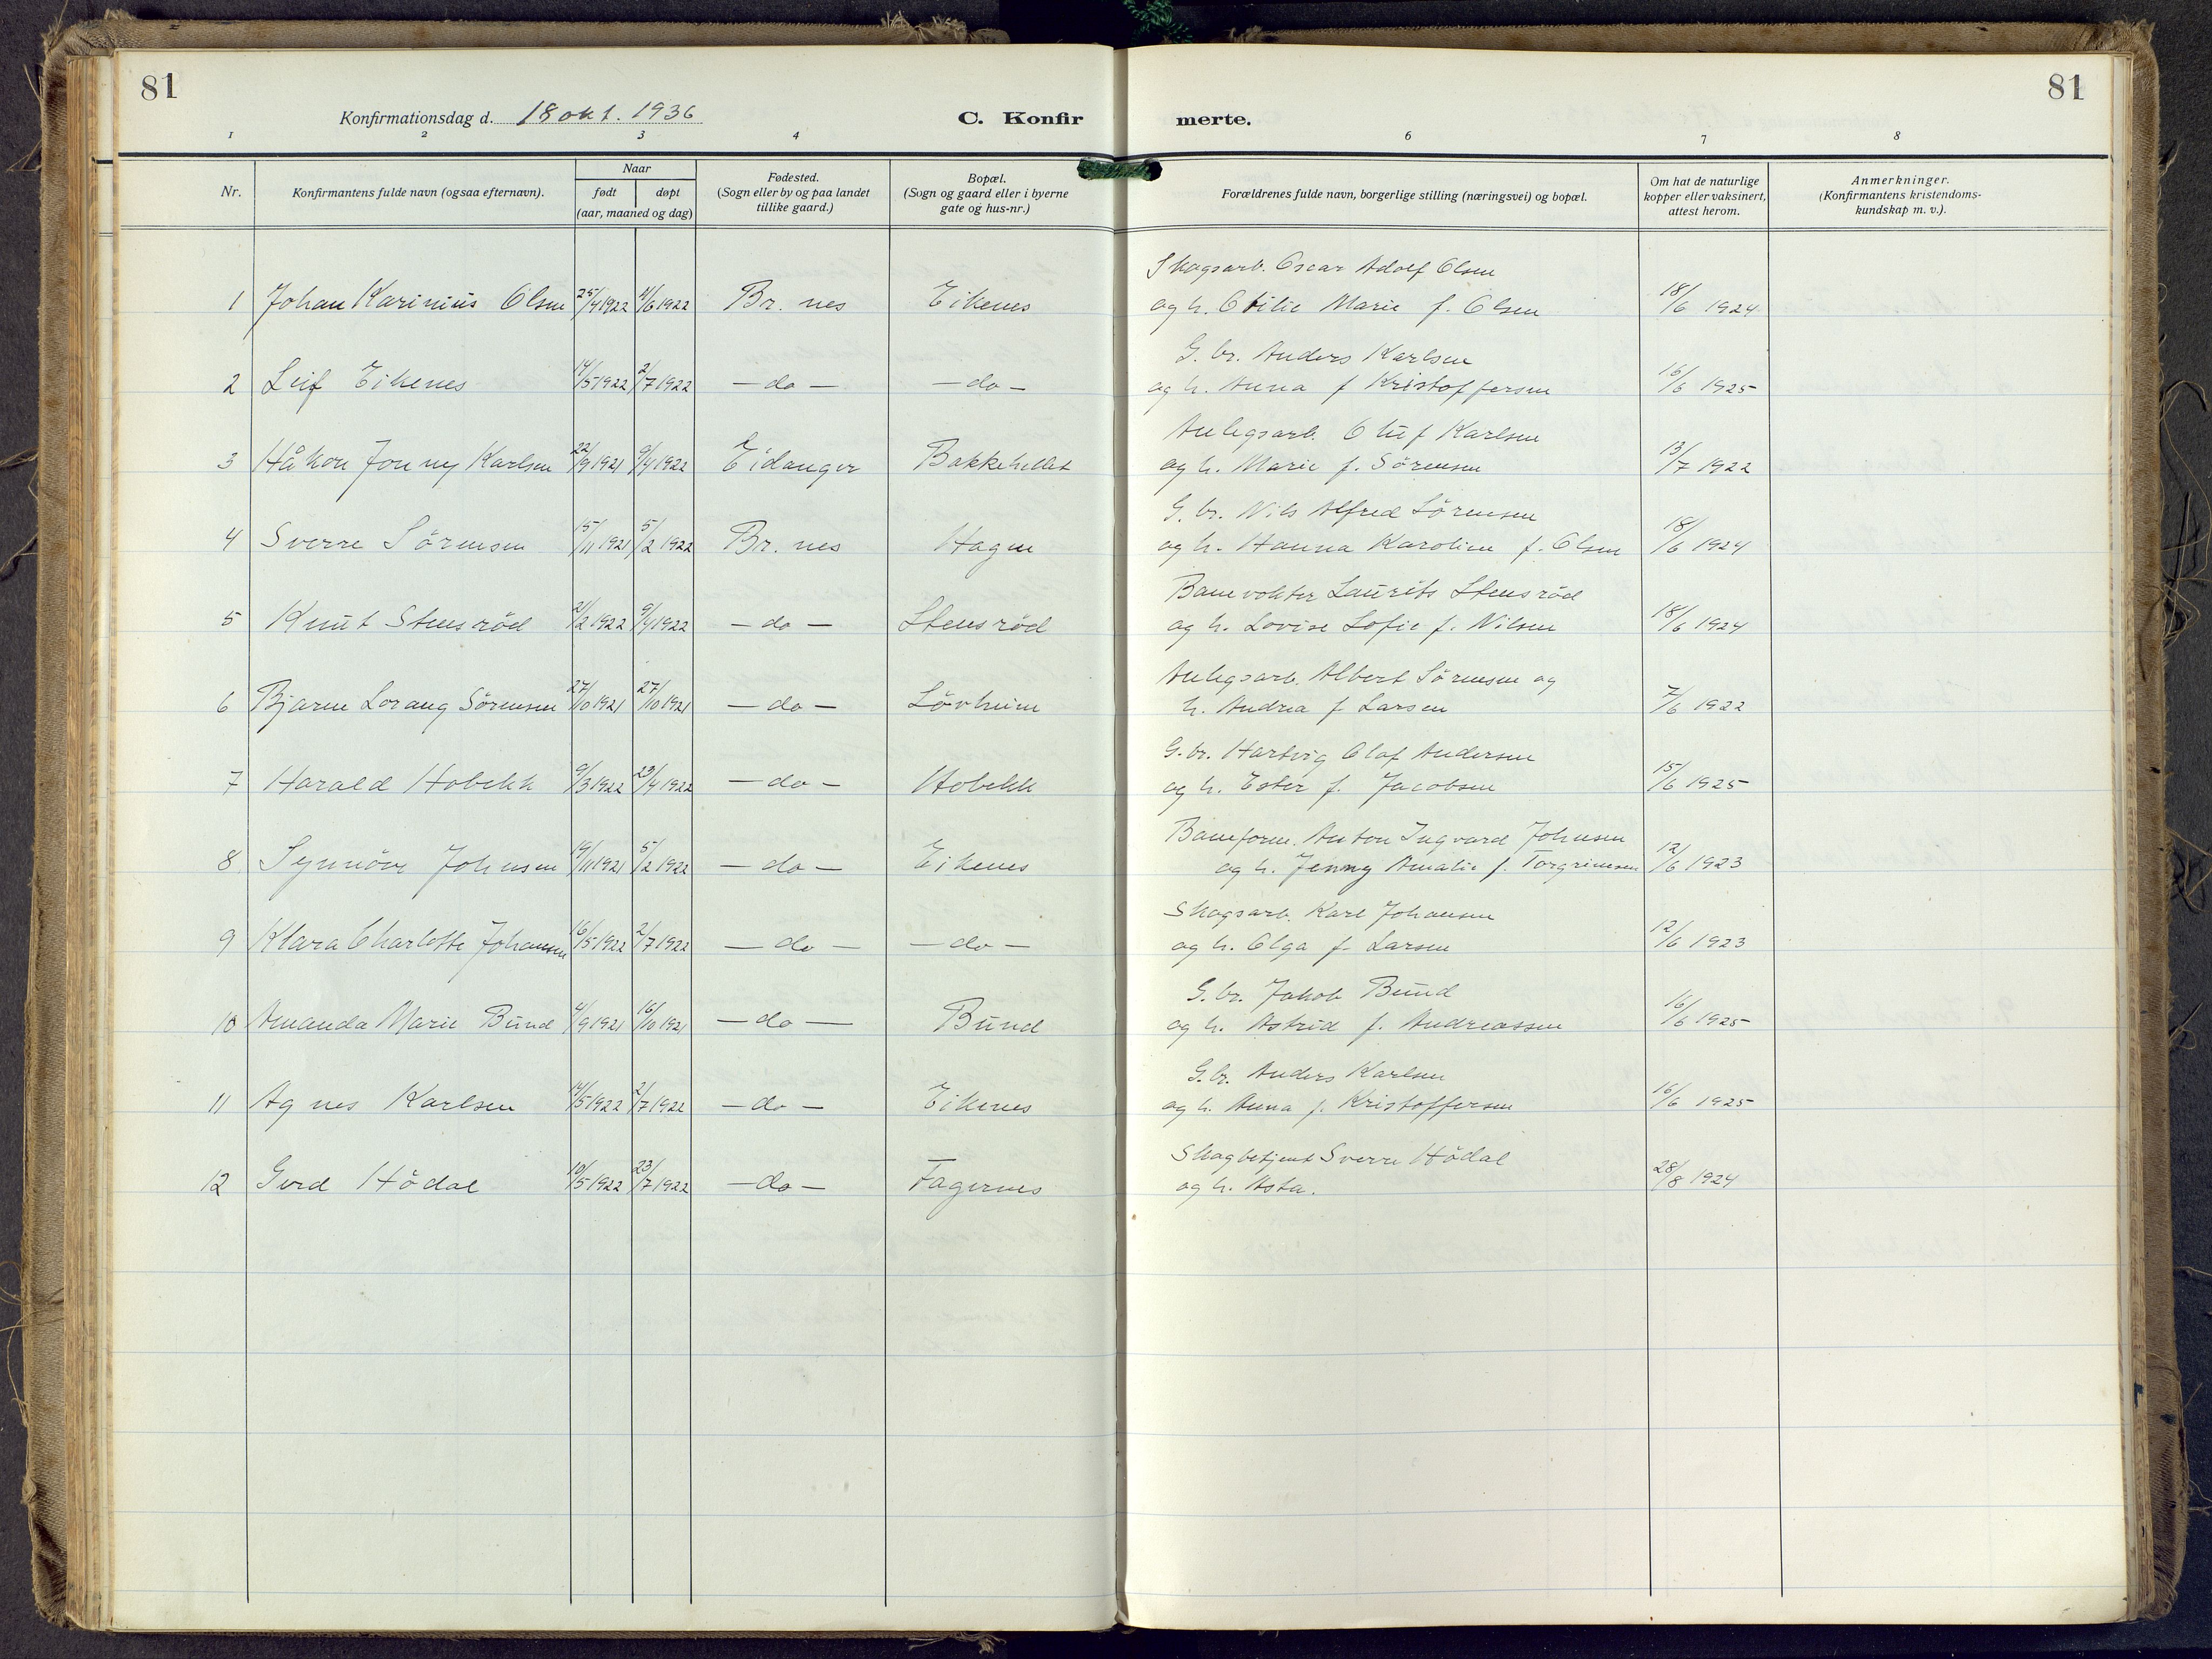 81
81
Konfirmationsdag d. 18 okt. 1936
C. Konfir merte.
1 2 3 4 6 7 8
Nr.
Konfirmantens fulde navn (ogsaa efternavn).
Naar
født døpt
(aar, maaned og dag)
Fødested.
(Sogn eller by og paa landet
tillike gaard.)
Bopæl.
(Sogn og gaard eller i byerne
gate og hus-nr.)
Forældrenes fulde navn, borgerlige stilling (næringsvei) og bopæl.
Om hat de naturlige
kopper eller vaksinert,
attest herom.
Anmerkninger.
(Konfirmantens kristendoms-
kundskap m. v.).
Skogsarb. Oscar Adolf Olsen
1 Johan Karinius Olsen 25/4 1922 4/6 1922 Br. nes Eikenes og h. Otilie Marie f. Olsen 18/6 1924
G. br. Anders Karlsen
2 Leif Eikenes 14/5 1922 2/7 1922 – do – – do – og h. Anna f Kristoffersen 16/6 1925
Anlegsarb. Oluf Karlsen
3 Håkon Jonny Karlsen 22/9 1921 9/4 1922 Eidanger Bakkehellet og h. Marie f. Sörensen 13/7 1922
G. br. Nils Alfred Sörensen
4 Sverre Sörensen 15/11 1921 5/2 1922 Br. nes Hagen og h. Hanna Karoline f. Olsen 18/6 1924
Banevokter Laurits Stensröd
5 Knut Stensröd 21/2 1922 9/4 1922 – do – Stensröd og h. Lovise Sofie f. Nilsen 18/6 1924
Anlegsarb. Albert Sörensen og
6 Bjarne Lorang Sörensen 27/10 1921 27/10 1921 – do – Lövheim h. Andrea f Larsen 7/6 1922
G. br. Hartvig Olaf Andersen
7 Harald Hobekk 9/3 1922 23/4 1922 – do – Hobekk og h. Ester f. Jacobsen 15/6 1925
Baneform. Anton Ingvard Johnsen
8 Synnöve Johnsen 19/11 1921 5/2 1922 – do – Eikenes og h. Jenny Amalie f. Torgrimsen 12/6 1923
Skogsarb. Karl Johansen
9 Klara Charlotte Johansen 16/5 1922 2/7 1922 – do – – do – og h. Olga f. Larsen 12/6 1923
G. br. Jakob Bund
10 Amanda Marie Bund 4/9 1921 16/10 1921 – do – Bund og h. Astrid f. Andreassen 16/6 1925
G. br. Anders Karlsen
11 Agnes Karlsen 14/5 1922 2/7 1922 – do – Eikenes og h. Anna f. Kristoffersen 16/6 1925
Skogbetjent Sverre Hödal
12 Gerd Hödal 10/5 1922 23/7 1922 – do – Fagernes og h. Asta. 28/8 1924